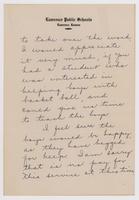 Lawrence Public Schools
Lawrence, Kansas
to take over the work.
I would appreciate
it very much, if you
had a student who
was interested in
helping boys with
basket ball, and
could give us time
to teach the boys
I feel sure the
boys would be happy
as they have begged
for help. I am sorry
that is no pay for
this service at this time